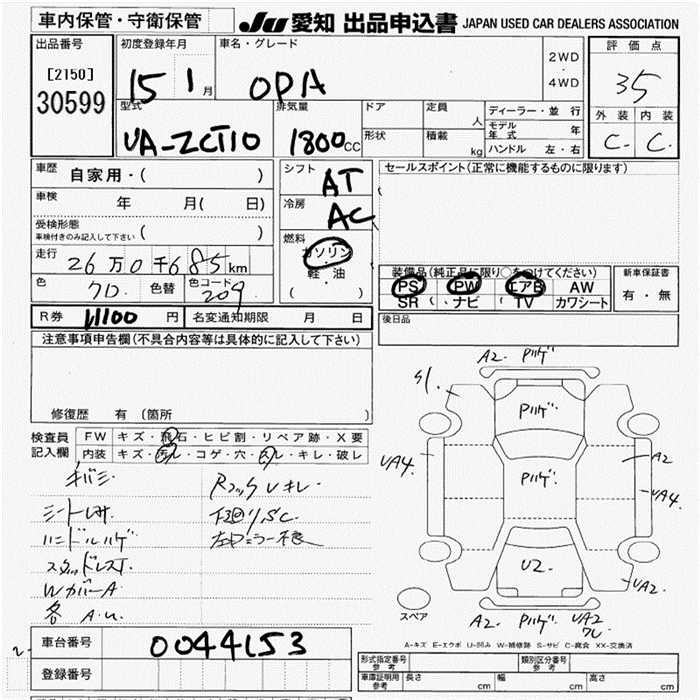 車内保管・守衛保管
JU 愛知 出品申込書 JAPAN USED CAR DEALERS ASSOCIATION
出品番号
[2150]
30599
初度登録年月
15 1 月
車名・グレード
OPA
2WD
・
4WD
評価点
3.5
外装 内装
C- C-
型式
UA-ZCT10
排気量
1800cc
ドア
形状
定員
人
積載
kg
ディーラー・並行
モデル年式 年
ハンドル 左・右
車歴
自家用・( )
車検
年 月( 日)
受検形態
車検付きのみ記入して下さい ( )
走行
26万0千685km
色
クロ
色替
色コード
209
シフト
AT
冷房
AC
燃料
ガソリン
軽・油
( )
セールスポイント(正常に機能するものに限ります)
装備品(純正品に限り○をつけてください)
PS PW エアB AW
SR ( ナビ ( TV カワシート
新車保証書
有・無
R券 11100 円
名変通知期限 月 日
後日品
注意事項申告欄(不具合内容等は具体的に記入して下さい)
修復歴 有(箇所
検査員
記入欄
FW キズ・飛石・ヒビ割・リペア跡・X要
内装 キズ・汚レ・コゲ・穴・スレ・キレ・破レ
キバミ
シートレサ
ハンドルハゲ
スタッドレスT.
WカバーA
各 A.U.
RフックUキレ
下廻リS.C.
左ドミラー不良
A2. Pハゲ
S1.
Pハゲ
UA4.
A2
Pハゲ
UA4.
U2.
UA2.
スペア
A2- Pハゲ UA2
A-キズ E-エクボ U-凹み W-補修跡 S-サビ C-腐食 XX-交換済
車台番号
0044153
登録番号
形式指定番号
参考
類別区分番号
参考
車庫証明用
参考
長さ cm 幅 cm 高さ cm